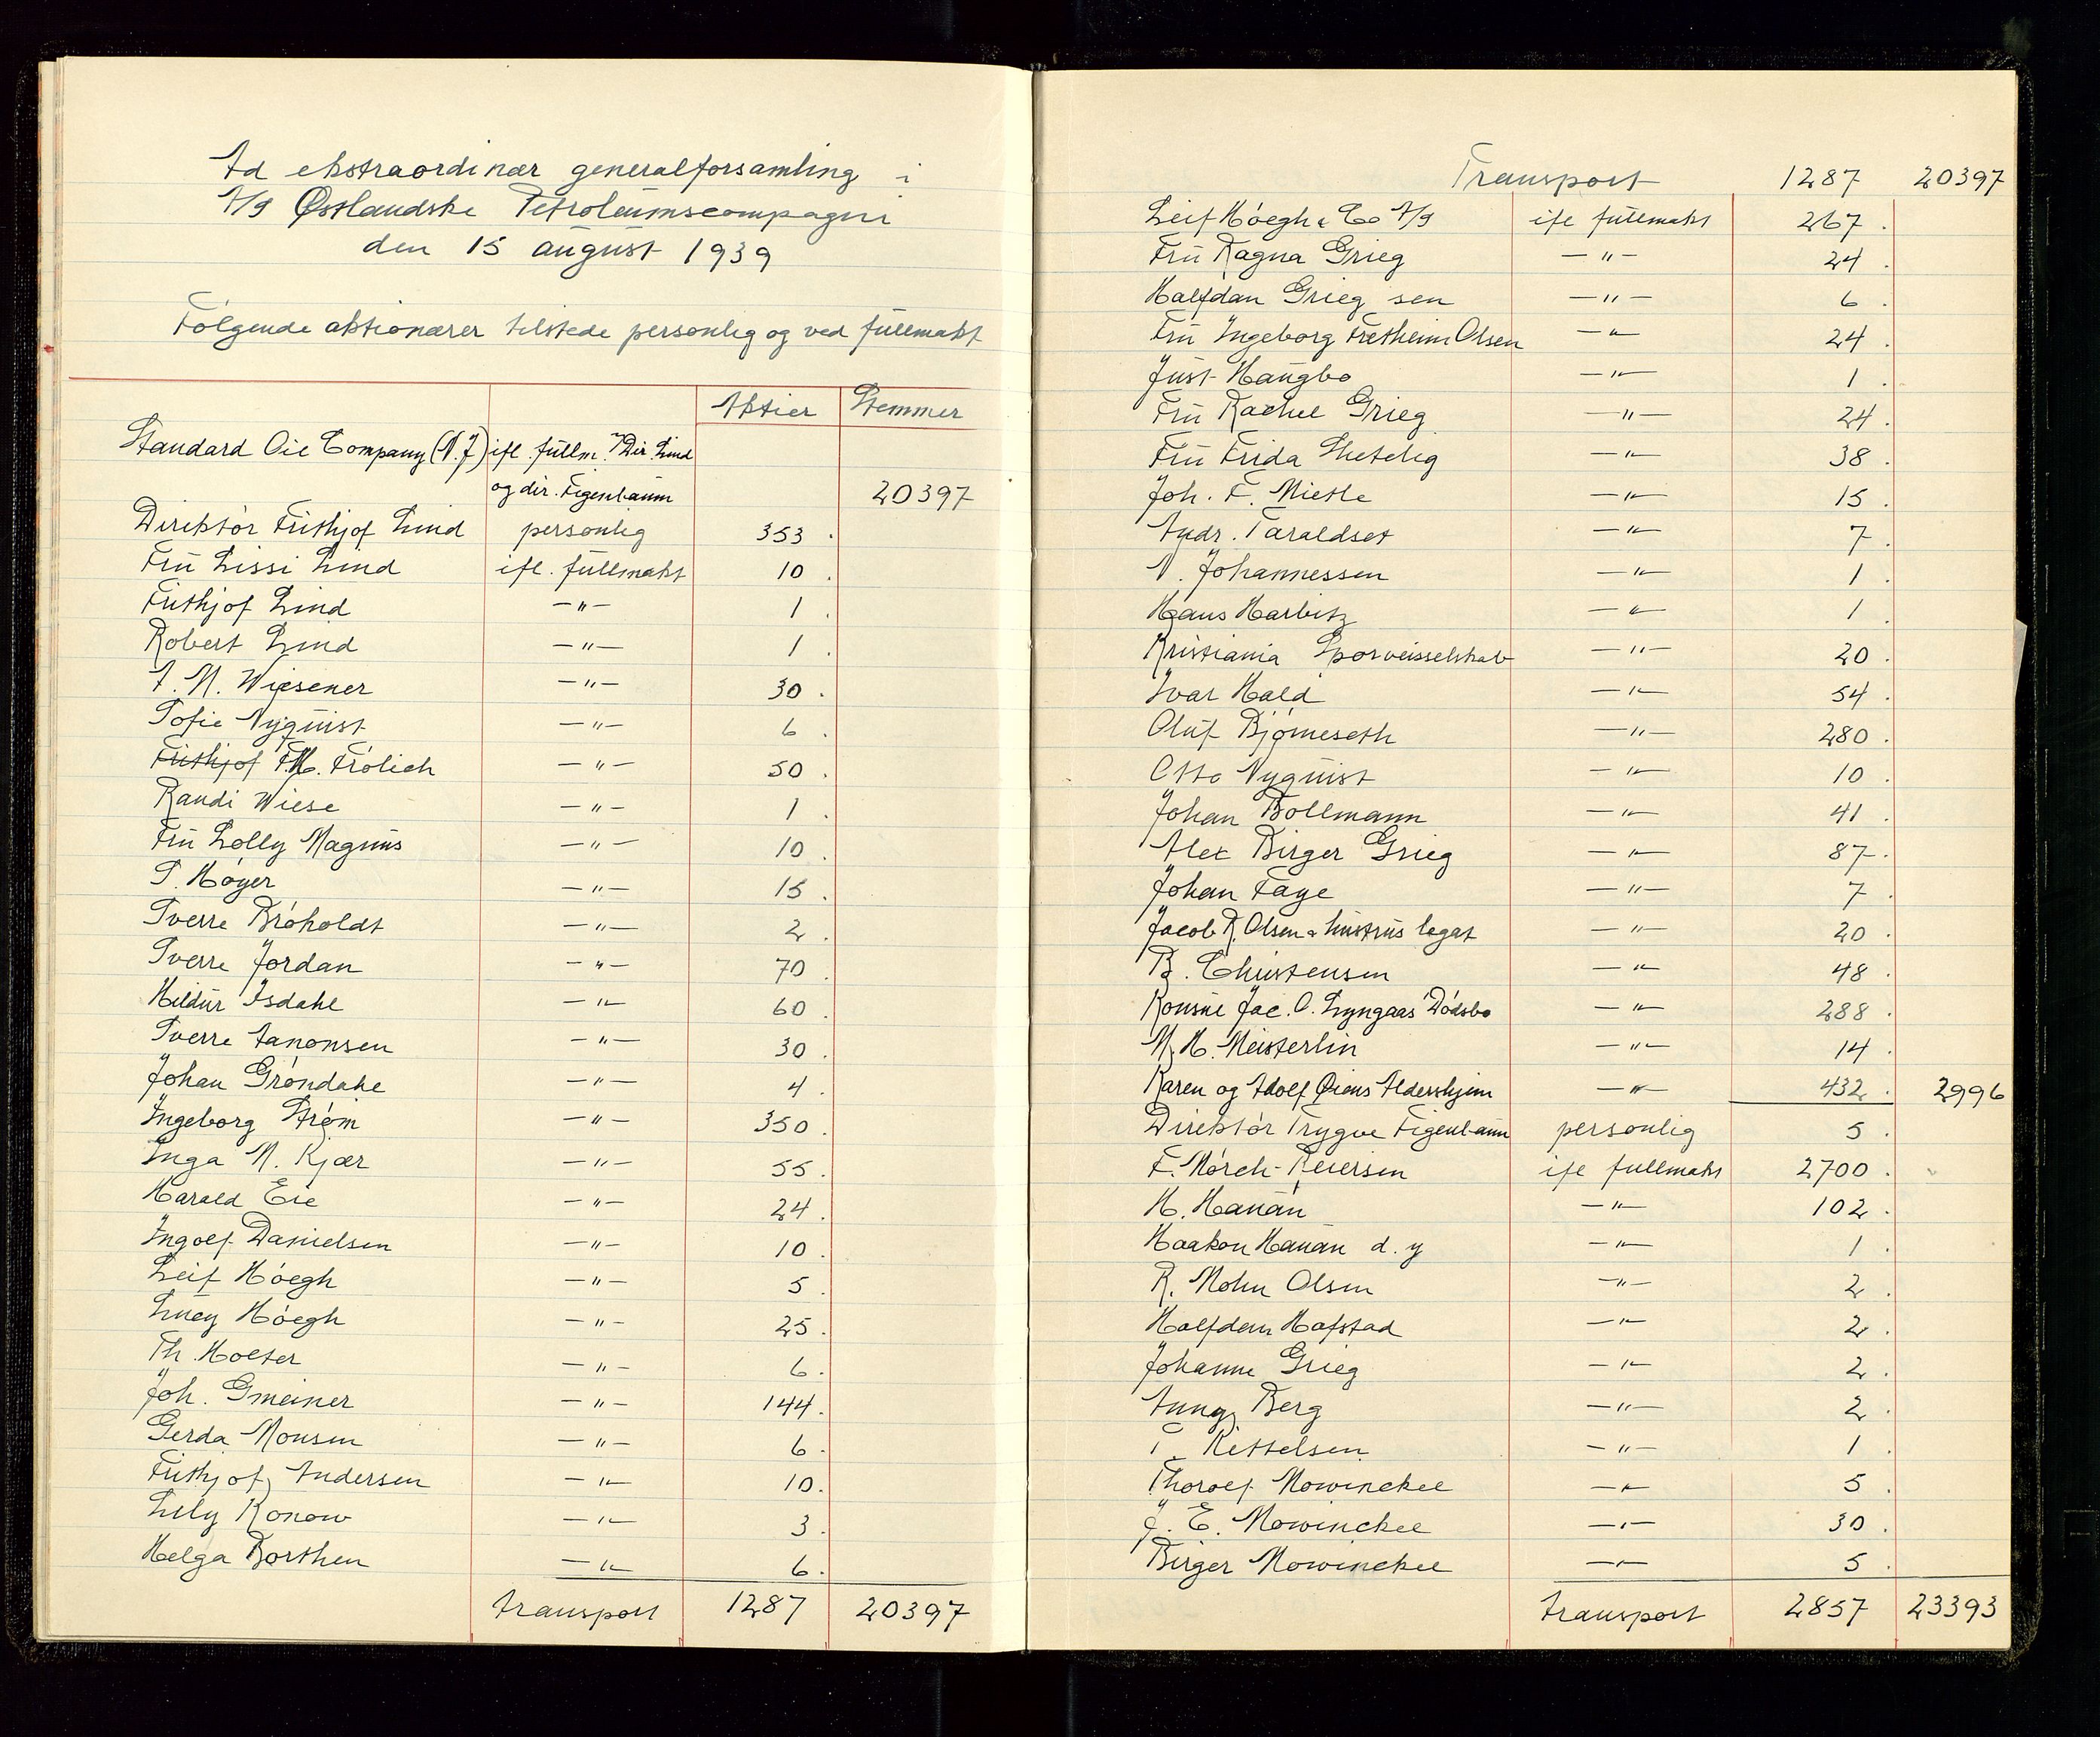 Ad ekstraordinær generalforsamling i
A/S Østlandske Petroleumscompagni
den 15 august 1939
Følgende aktionærer tilstede personlig og ved fullmakt
Aktier Stemmer
Standard Oil Company (N.J) ifl. fullm. Dir. Lind
og dir. Figenbaum 20397
Direktør Frithjof Lind personlig 353
Fru Lissi Lind ifl. fullmakt 10
Frithjof Lind —"— 1
Robert Lind —"— 1
A. N. Wiesener —"— 30
Sofie Nyquist —"— 6
Frithjof F.H. Frölich —"— 50
Randi Wiese —"— 1
Fru Lolly Magnus —"— 10
S. Høyer —"— 15
Sverre Brøholdt —"— 2
Sverre Jordan —"— 70
Hildur Isdahl —"— 60
Sverre Aanonsen —"— 30
Johan Grøndahl —"— 4
Ingeborg Strøm —"— 350
Inga N. Kjær —"— 55
Harald Eie —"— 24
Ingolf Danielsen —"— 10
Leif Høegh —"— 5
Lucy Høegh —"— 25
Th. Holter —"— 6
Joh. Gmeiner —"— 144
Gerda Monsen —"— 6
Frithjof Andersen —"— 10
Lily Konow —"— 3
Helga Borthen —"— 6
transport 1287 20397
Transport 1287 20397
Leif Høegh & Co A/S ifl fullmakt 267
Fru Ragna Grieg —"— 24
Halfdan Grieg sen —"— 6
Fru Ingeborg Fretheim Olsen —"— 24
Just Haugbo —"— 1
Fru Rachel Grieg —"— 24
Fru Frida Shetelig —"— 38
Joh. F. Mietle —"— 15
Andr. Taraldset —"— 7
N. Johannessen —"— 1
Hans Harbitz —"— 1
Kristiania Sporveisselskab —"— 20
Ivar Hald —"— 54
Oluf Bjørneseth —"— 280
Otto Nyquist —"— 10
Johan Bollmann —"— 41
Alex Birger Grieg —"— 87
Johan Faye —"— 7
Jacob R. Olsen & hustrus legat —"— 20
B. Christensen —"— 48
Konsul Jac. O. Lyngaas Dødsbo —"— 288
N. H. Meisterlin —"— 14
Karen og Adolf Øiens Aldershjem —"— 432 2996
Direktør Trygve Figenbaum personlig 5
F. Mørch-Reiersen ifl fullmakt 2700
H. Hauan —"— 102
Haakon Hauan d. y —"— 1
R. Mohn Olsen —"— 2
Halfdan Hafstad —"— 2
Johanne Grieg —"— 2
Aung. Berg —"— 2
T. Kittelsen —"— 1
Thorolf Mowinckel —"— 5
J. E. Mowinckel —"— 30
Birger Mowinckel —"— 5
transport 2857 23393